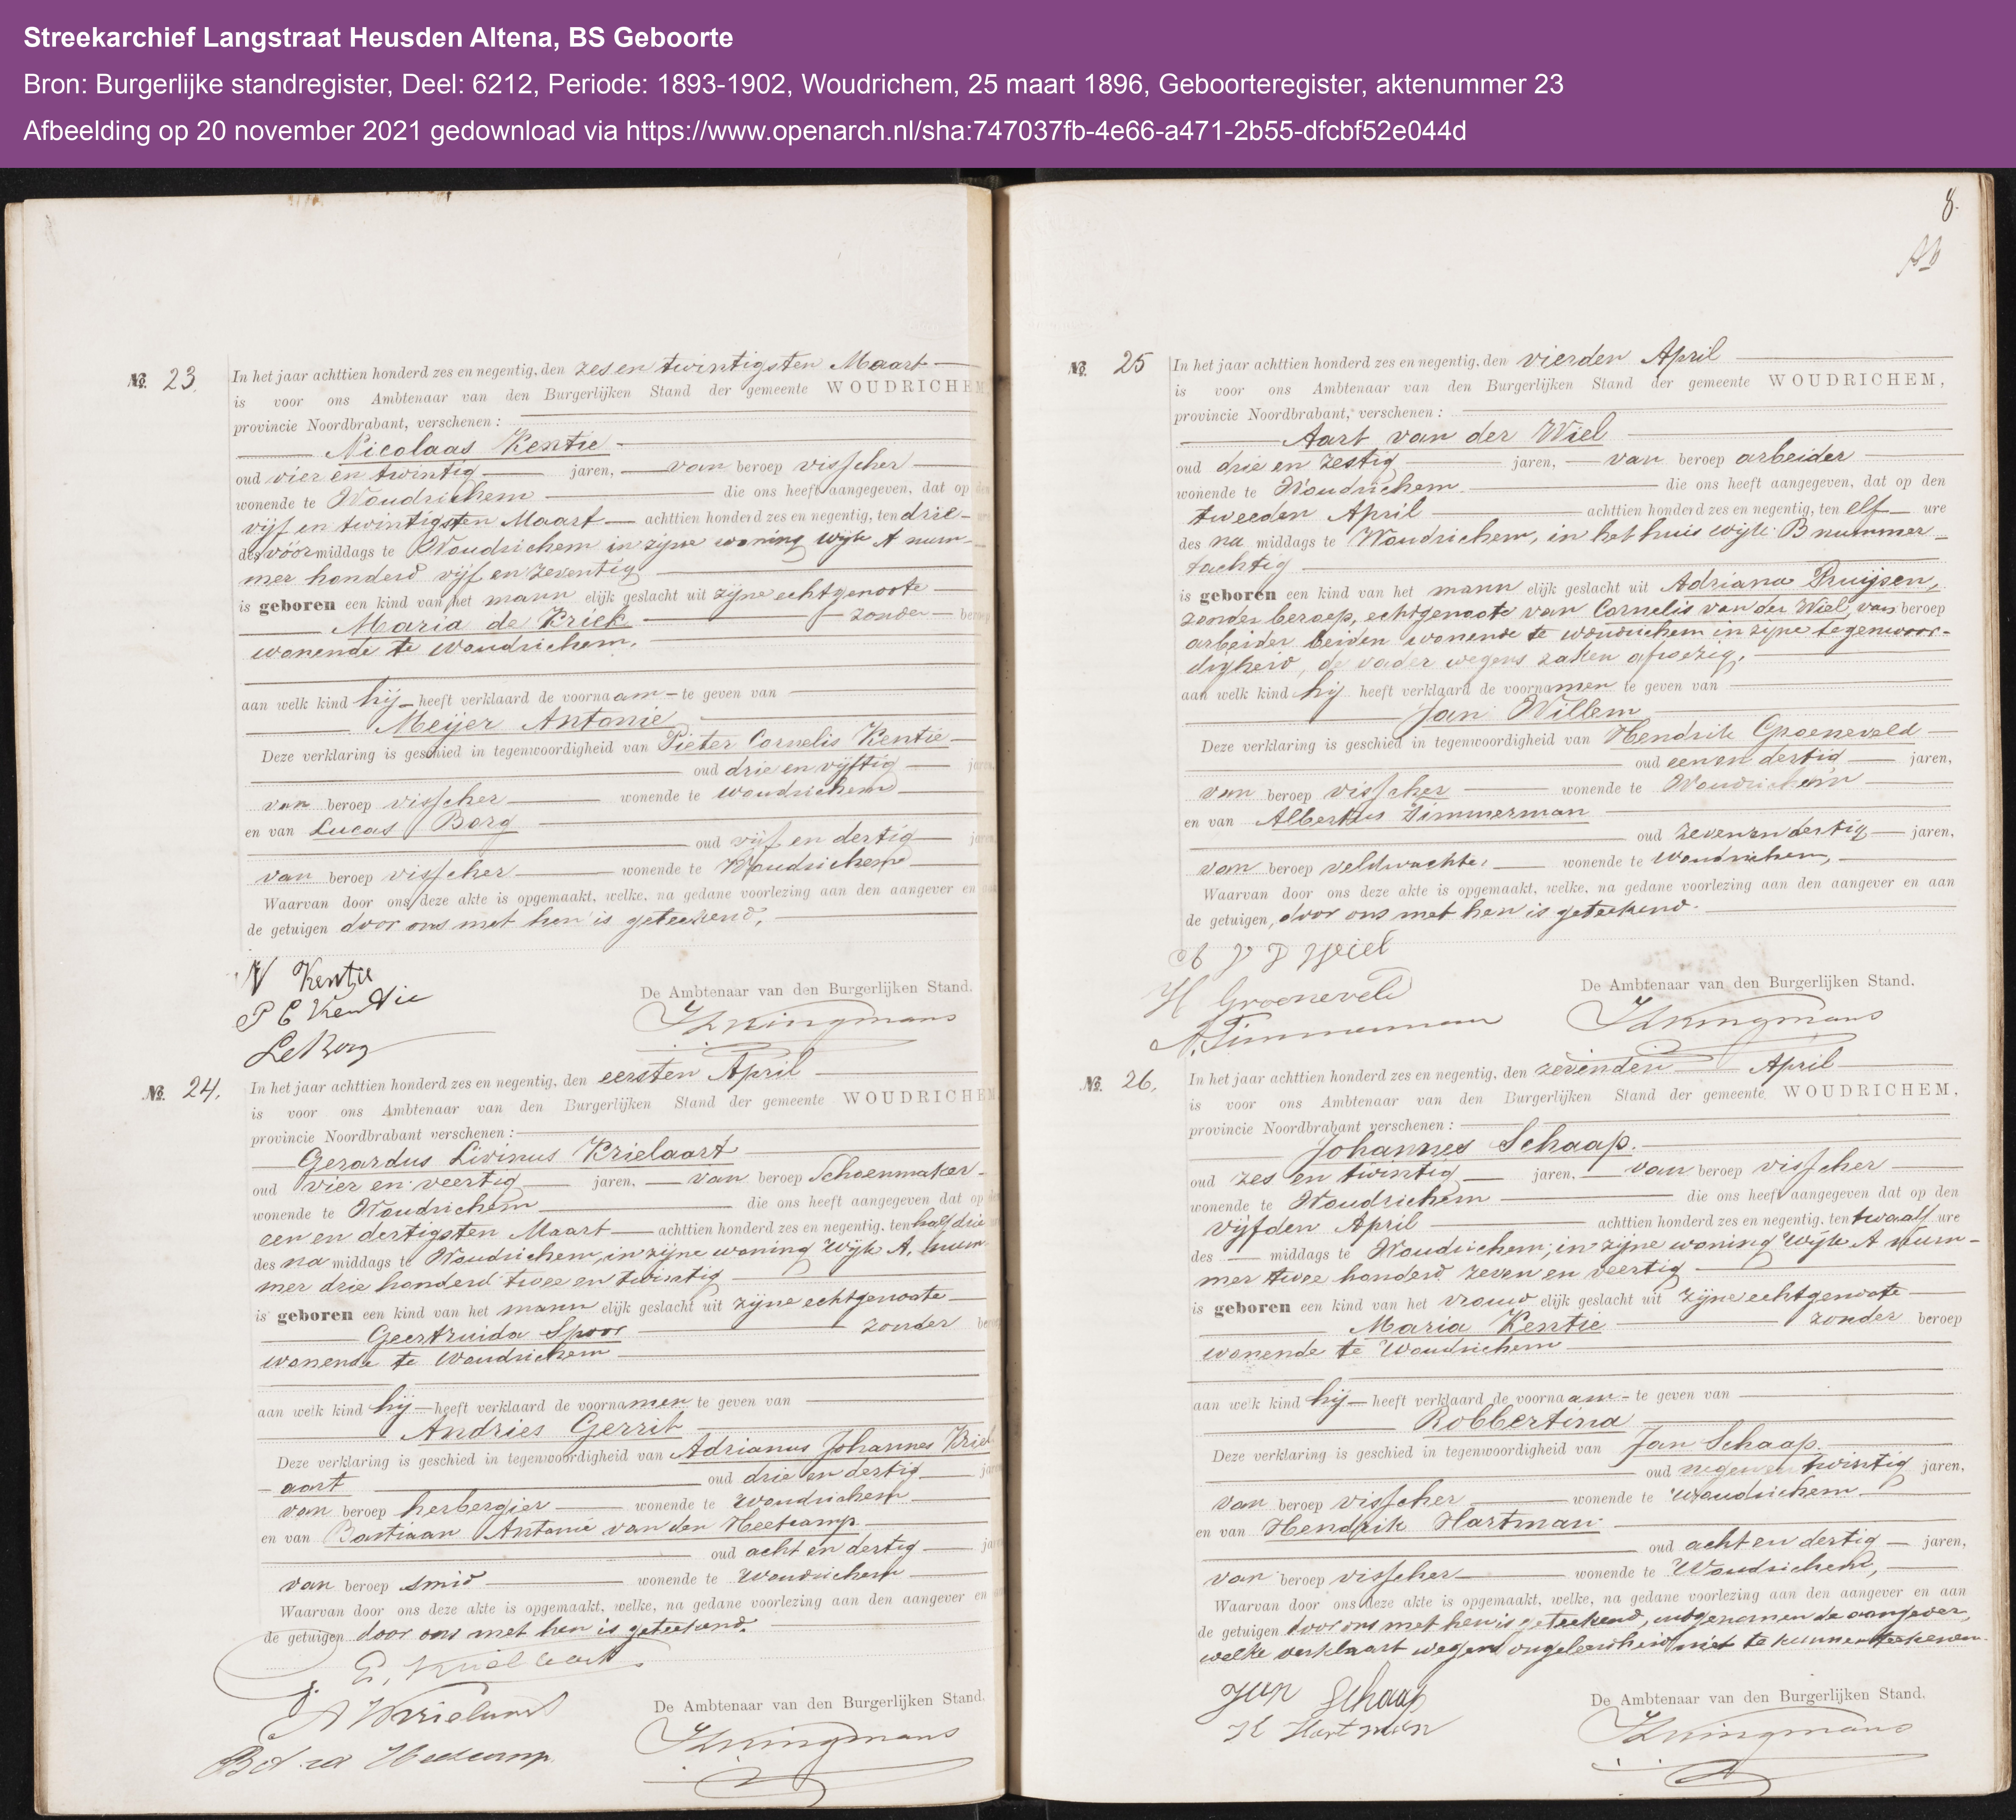 Streekarchief Langstraat Heusden Altena, BS Geboorte
Bron: Burgerlijke standregister, Deel: 6212, Periode: 1893-1902, Woudrichem, 25 maart 1896, Geboorteregister, aktenummer 23
Afbeelding op 20 november 2021 gedownload via https://www.openarch.nl/sha:747037fb-4e66-a471-2b55-dfcbf52e044d
No. 23. In het jaar achttien honderd zes en negentig, den zes en twintigsten Maart
is voor ons Ambtenaar van den Burgerlijken Stand der gemeente WOUDRICHEM
provincie Noordbrabant, verschenen:
Nicolaas Kentie
oud vier en twintig jaren, van beroep visscher
wonende te Woudrichem die ons heeft aangegeven, dat op den
vijf en twintigsten Maart achttien honderd zes en negentig, ten drie ure
des vóórmiddags te Woudrichem in zijne woning Wijk A num-
mer honderd vijf en zeventig
is geboren een kind van het mannelijk geslacht uit zijne echtgenoote
Maria de Kriek zonder beroep
wonende te Woudrichem.
aan welk kind hij heeft verklaard de voornaam te geven van
Meijer Antonie
Deze verklaring is geschied in tegenwoordigheid van Pieter Cornelis Kentie
oud drie en vijftig jaren,
van beroep visscher wonende te Woudrichem
en van Lucas Borg
oud vijf en dertig jaren
van beroep visscher wonende te Woudrichem
Waarvan door ons deze akte is opgemaakt, welke, na gedane voorlezing aan den aangever en aan
de getuigen door ons met hen is geteekend.
N Kentie
P C Kentie
L. Borg
De Ambtenaar van den Burgerlijken Stand.
Kringmans
No. 24. In het jaar achttien honderd zes en negentig, den eersten April
is voor ons Ambtenaar van den Burgerlijken Stand der gemeente WOUDRICHEM
provincie Noordbrabant verschenen:
Gerardus Livinus Krielaart
oud vier en veertig jaren, van beroep Schoenmaker
wonende te Woudrichem die ons heeft aangegeven dat op den
een en dertigsten Maart achttien honderd zes en negentig, ten half drie
des namiddags te Woudrichem, in zijne woning Wijk A, num
mer drie honderd twee en twintig
is geboren een kind van het mannelijk geslacht uit zijne echtgenoote
Geertruida Spoor zonder beroep
wonende te Woudrichem
aan welk kind hij heeft verklaard de voornamen te geven van
Andries Gerrit
Deze verklaring is geschied in tegenwoordigheid van Adrianus Johannes Kriel
aart oud drie en dertig jaren
van beroep herbergier wonende te Woudrichem
en van Bastiaan Antonie van den Heetcamp
oud acht en dertig jaren
van beroep smid wonende te Woudrichem
Waarvan door ons deze akte is opgemaakt, welke, na gedane voorlezing aan den aangever en aan
de getuigen door ons met hen is geteekend.
Krielaart
A Krielaart
Heetcamp
De Ambtenaar van den Burgerlijken Stand.
Kringmans
8.
No. 25 In het jaar achttien honderd zes en negentig, den vierden April
is voor ons Ambtenaar van den Burgerlijken Stand der gemeente WOUDRICHEM,
provincie Noordbrabant, verschenen:
Aart van der Wiel
oud drie en zestig jaren, van beroep arbeider
wonende te Woudrichem die ons heeft aangegeven, dat op den
tweeden April achttien honderd zes en negentig, ten elf ure
des na middags te Woudrichem, in het huis wijk B nummer
tachtig
is geboren een kind van het mannelijk geslacht uit Adriana Pruijsen,
zonder beroep, echtgenoote van Cornelis van der Wiel, van beroep
arbeider beiden wonende te Woudrichem in zijne tegenwoor-
digheid, de vader wegens zaken afwezig.
aan welk kind hij heeft verklaard de voornamen te geven van
Jan Willem
Deze verklaring is geschied in tegenwoordigheid van Hendrik Groeneveld
oud een en dertig jaren,
van beroep visscher wonende te Woudrichem
en van Albertus Timmerman
oud zeven en dertig jaren,
van beroep veldwachter wonende te Woudrichem,
Waarvan door ons deze akte is opgemaakt, welke, na gedane voorlezing aan den aangever en aan
de getuigen, door ons met hen is geteekend.
A V D Wiel
H Groeneveld
A. Timmerman
De Ambtenaar van den Burgerlijken Stand.
Kringmans
No. 26. In het jaar achttien honderd zes en negentig, den zevenden April
is voor ons Ambtenaar van den Burgerlijken Stand der gemeente WOUDRICHEM,
provincie Noordbrabant verschenen:
Johannes Schaap.
oud zes en twintig jaren, van beroep visscher
wonende te Woudrichem die ons heeft aangegeven dat op den
vijfden April achttien honderd zes en negentig, ten twaalf ure
des middags te Woudrichem, in zijne woning Wijk A num-
mer twee honderd zeven en veertig
is geboren een kind van het vrouwelijk geslacht uit zijne echtgenoote
Maria Kentie zonder beroep
wonende te Woudrichem
aan welk kind hij heeft verklaard de voornaam te geven van
Robbertina
Deze verklaring is geschied in tegenwoordigheid van Jan Schaap.
oud negen en twintig jaren,
van beroep visscher wonende te Woudrichem
en van Hendrik Hartman
oud acht en dertig jaren,
van beroep visscher wonende te Woudrichem,
Waarvan door ons deze akte is opgemaakt, welke, na gedane voorlezing aan den aangever en aan
de getuigen door ons met hen is geteekend, uitgenomen de aangever,
welke verklaart wegens ongeleerdheid niet te kunnen teekenen.
Jan Schaap
H Hartman
De Ambtenaar van den Burgerlijken Stand.
Kringmans